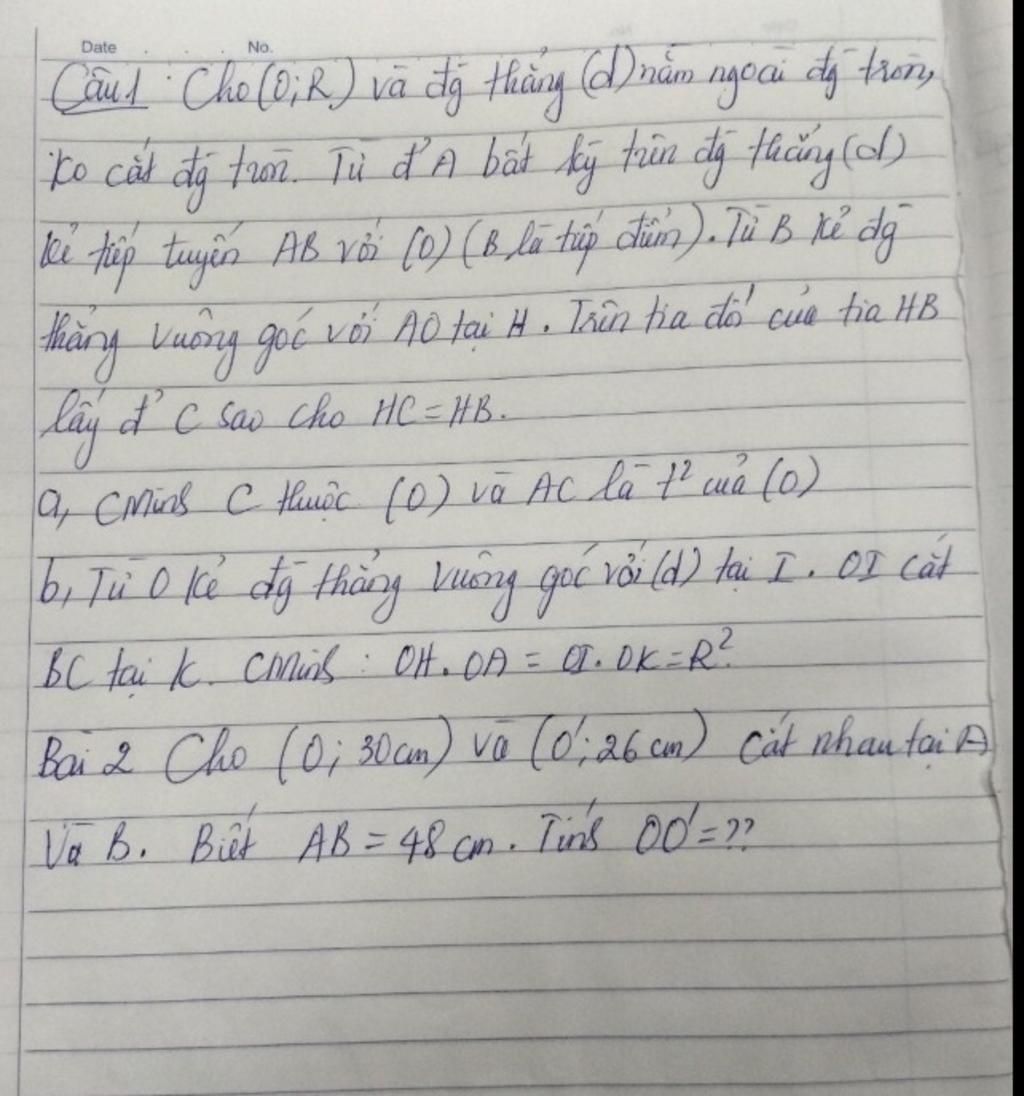 Date . . . No.
Câu1 : Cho (O;R) và đg thẳng (d) nằm ngoài đg tròn,
ko cắt đg tròn. Từ đ' A bất kỳ trên đg thẳng (d)
kẻ tiếp tuyến AB với (O) (B là tiếp điểm). Từ B kẻ đg
thẳng vuông góc với AO tại H. Trên tia đối của tia HB
lấy đ' C sao cho HC = HB.
a, CMinh C thuộc (O) và AC là t² của (O)
b, Từ O kẻ đg thẳng vuông góc với (d) tại I. OI cắt
BC tại K. CMinh : OH.OA = OI.OK = R².
Bài 2 Cho (O; 30cm) và (O'; 26cm) cắt nhau tại A
Và B. Biết AB = 48 cm. Tính OO' = ??